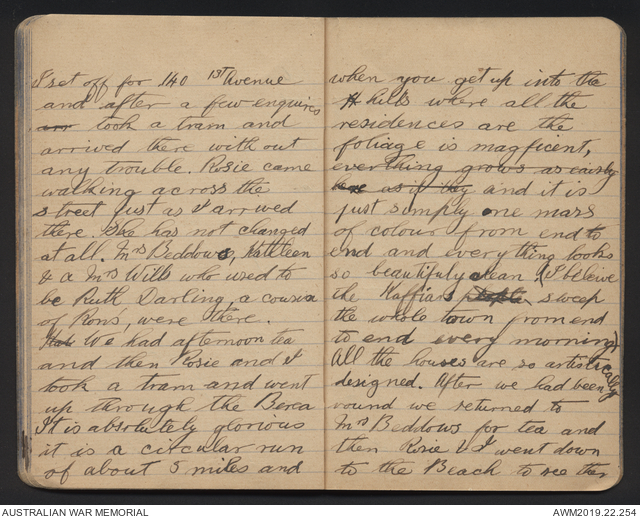 I set off for 140 13th Avenue
and after a few enquires
took a tram and
arrived there without
any trouble. Rosie came
walking across the
street just as I arrived
there. She has not changed
at all. Mrs Beddows, Kathleen
& a Mrs Wills who used to
be Ruth Darling, a cousin
of Rons, were there.
We had afternoon tea
and then Rosie and I
took a tram and went
up through the Berea
It is absolutely glorious
it is a circular run
of about 5 miles and
when you get up into the
hills where all the
residences are the
foliage is magficent,
everything grows as easily
as if they and it is
just simply one mass
of colour from end to
end and everything looks
so beautifuly clean (I beleive
the Kaffirs people sweep
the whole town from end
to end every morning)
All the houses are so artistically
designed. After we had been
round we returned to
Mrs Beddows for tea and
then Rosie & I went down
to the Beach to see the
AUSTRALIAN WAR MEMORIAL
AWM2019.22.254